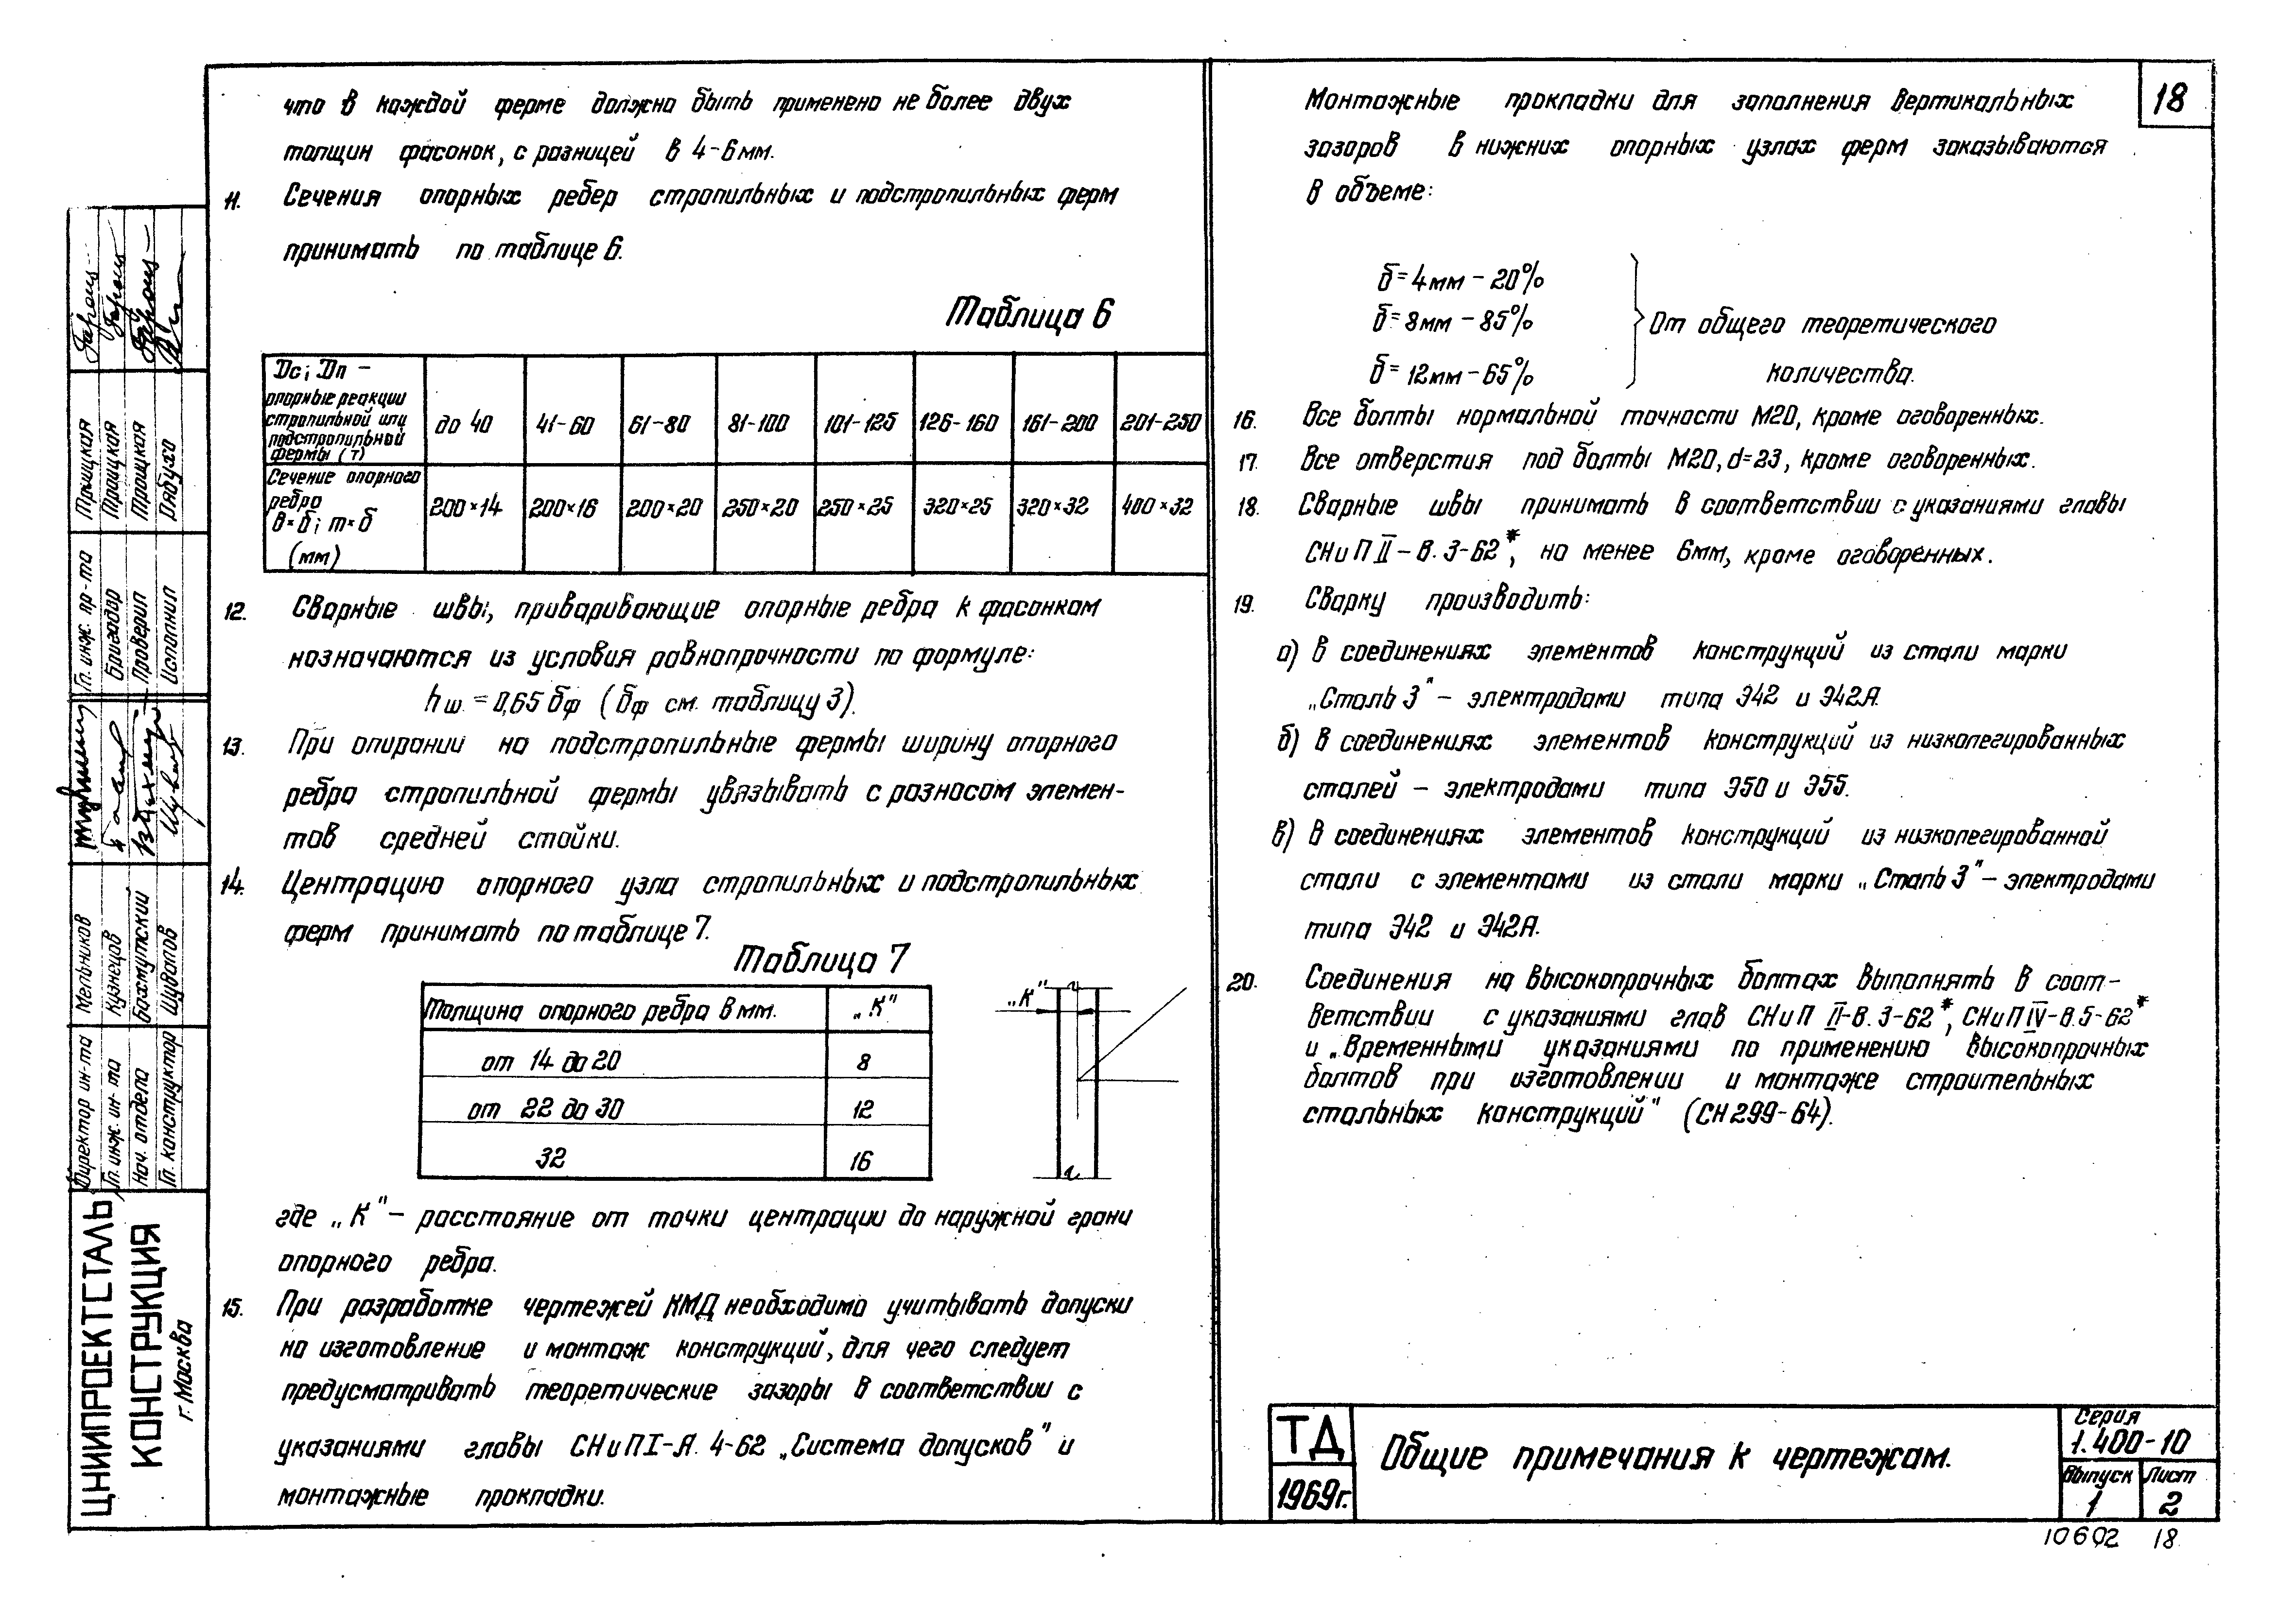 что в каждой ферме должно быть применено не более двух
толщин фасонок, с разницей в 4-6мм.
11. Сечения опорных ребер стропильных и подстропильных ферм
принимать по таблице 6.
Таблица 6
Dс; Dп –
опорные реакции
стропильной или
подстропильной
фермы (т)
до 40 41-60 61-80 81-100 101-125 126-160 161-200 201-250
Сечение опорного
ребра
в×δ; m×δ
(мм)
200×14 200×16 200×20 250×20 250×25 320×25 320×32 400×32
12. Сварные швы, приваривающие опорные ребра к фасонкам
назначаются из условия равнопрочности по формуле:
hш. = 0,65 δф (δф см. таблицу 3).
13. При опирании на подстропильные фермы ширину опорного
ребра стропильной фермы увязывать с разносом элемен-
тов средней стойки.
14. Центрацию опорного узла стропильных и подстропильных
ферм принимать по таблице 7.
Таблица 7
Толщина опорного ребра в мм. „К"
от 14 до 20 8
от 22 до 30 12
32 16
„К"
где „К" – расстояние от точки центрации до наружной грани
опорного ребра.
15. При разработке чертежей КМД необходимо учитывать допуски
на изготовление и монтаж конструкций, для чего следует
предусматривать теоретические зазоры в соответствии с
указаниями главы СНиП I-А. 4-62 „Система допусков" и
монтажные прокладки.
18
Монтажные прокладки для заполнения вертикальных
зазоров в нижних опорных узлах ферм заказываются
в объеме:
δ = 4мм – 20%
δ = 8мм – 85%
δ = 12мм – 65%
От общего теоретического
количества.
16. Все болты нормальной точности М20, кроме оговоренных.
17. Все отверстия под болты М20, d=23, кроме оговоренных.
18. Сварные швы принимать в соответствии с указаниями главы
СНиП II – В. 3-62*, но менее 6мм, кроме оговоренных.
19. Сварку производить:
а) в соединениях элементов конструкций из стали марки
„Сталь 3" – электродами типа Э42 и Э42А.
б) в соединениях элементов конструкций из низколегированных
сталей – электродами типа Э50 и Э55.
в) в соединениях элементов конструкций из низколегированной
стали с элементами из стали марки „Сталь 3" – электродами
типа Э42 и Э42А.
20. Соединения на высокопрочных болтах выполнять в соот-
ветствии с указаниями глав СНиП II-В. 3-62*, СНиП IV-В.5-62*
и „Временными указаниями по применению высокопрочных
болтов при изготовлении и монтаже строительных
стальных конструкций" (СН 299-64).
ТД
1969г.
Общие примечания к чертежам.
Серия
1.400-10
Выпуск Лист
1 2
10602 18
ЦНИИПРОЕКТСТАЛЬ
КОНСТРУКЦИЯ
г. Москва
Директор ин-та Мельников
Гл. инж. ин-та Кузнецов
Нач. отдела Бахмутский
Гл. конструктор Шувалов
Гл. инж. пр-та Прицкая
Бригадир Прицкая
Проверил Прицкая
Исполнил Рябухо